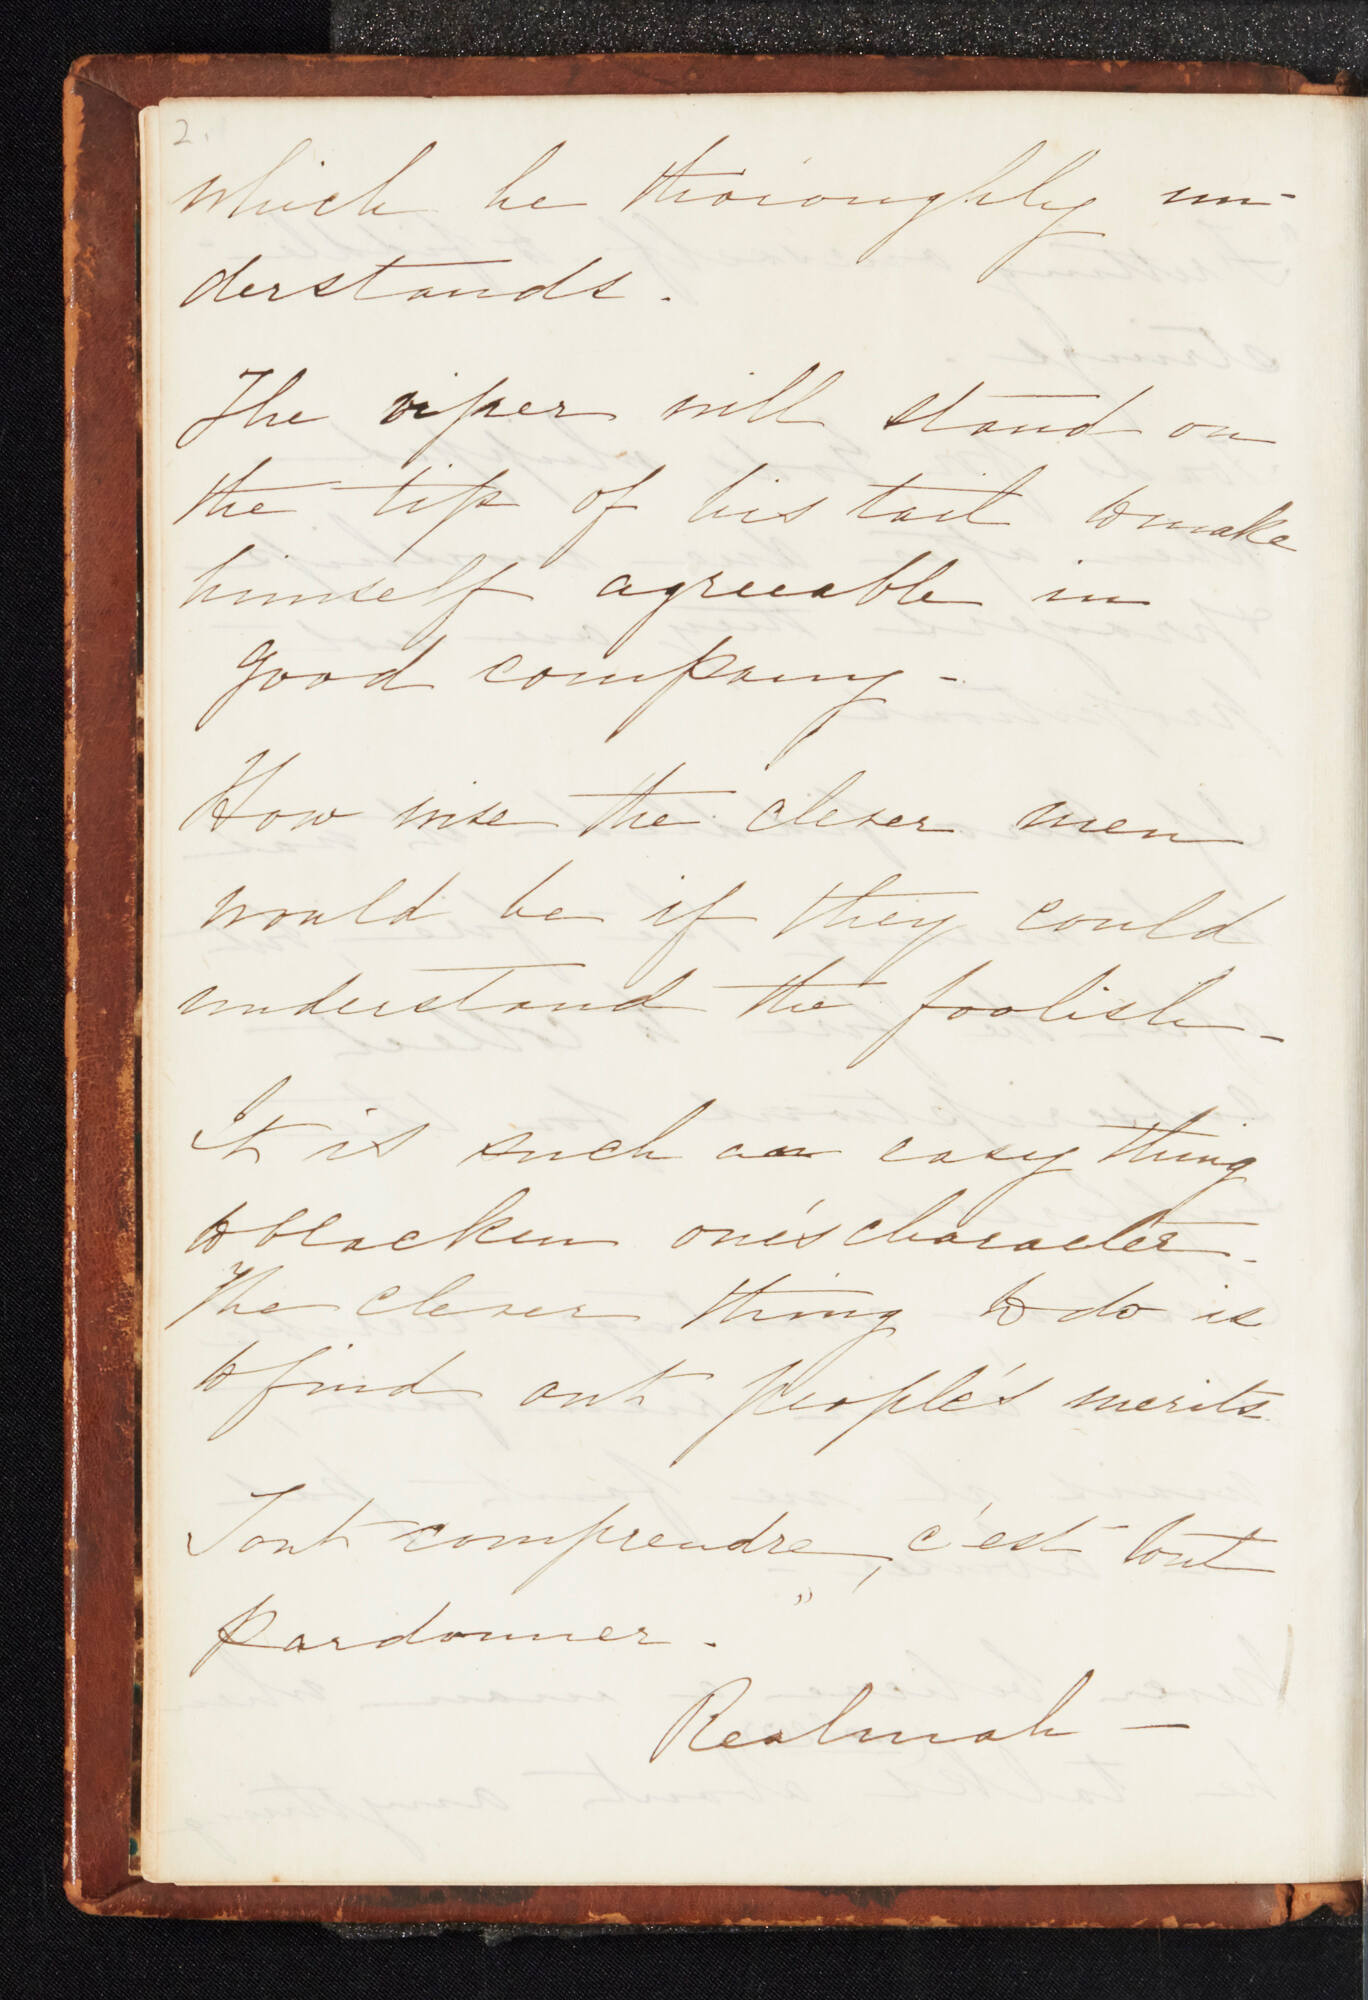 2.
which he thoroughly un-
derstands.
The viper will stand on
the tip of his tail to make
himself agreeable in
good company -
How wise the clever men
would be if they could
understand the foolish -
It is such an easy thing
to blacken one's character.
The clever thing to do is
to find out people's merits.
Tout comprendre, c'est tout
pardonner."
Realmah —